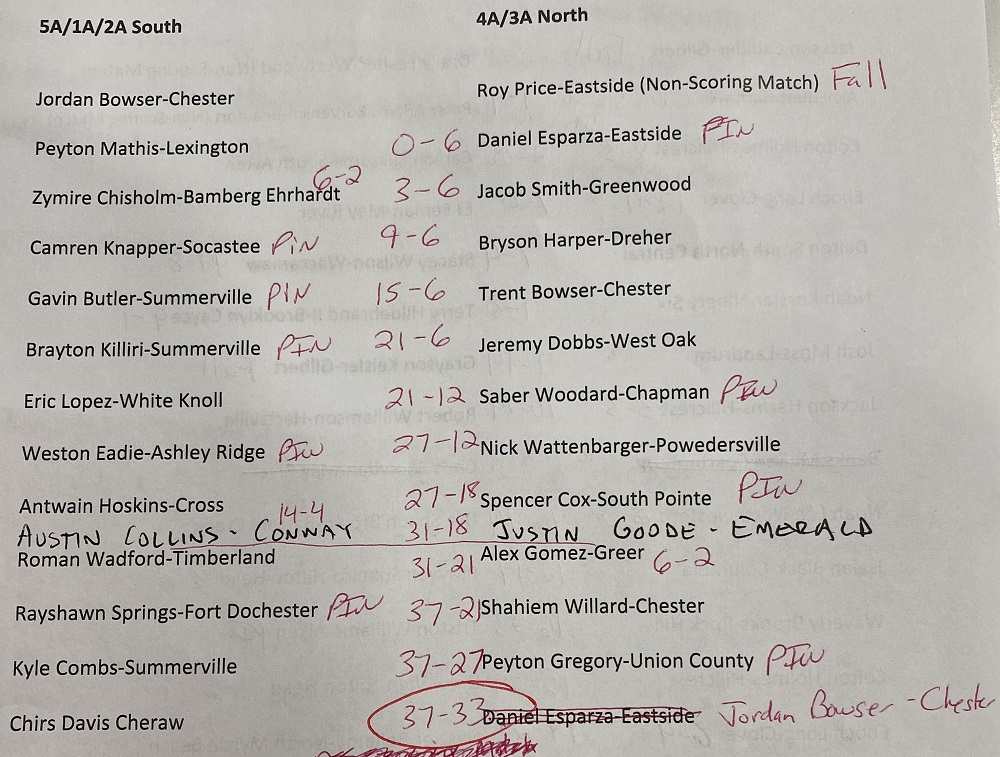 5A/1A/2A South 4A/3A North
Jordan Bowser-Chester Roy Price-Eastside (Non-Scoring Match) Fall
Peyton Mathis-Lexington 0-6 Daniel Esparza-Eastside PIN
Zymire Chisholm-Bamberg Ehrhardt 6-2 3-6 Jacob Smith-Greenwood
Camren Knapper-Socastee PiN 9-6 Bryson Harper-Dreher
Gavin Butler-Summerville PIN 15-6 Trent Bowser-Chester
Brayton Killiri-Summerville PIN 21-6 Jeremy Dobbs-West Oak
Eric Lopez-White Knoll 21-12 Saber Woodard-Chapman PIN
Weston Eadie-Ashley Ridge PIN 27-12 Nick Wattenbarger-Powedersville
Antwain Hoskins-Cross 27-18 Spencer Cox-South Pointe PIN
AUSTIN COLLINS - CONWAY 14-4 31-18 JUSTIN GOODE - EMERALD
Roman Wadford-Timberland 31-21 Alex Gomez-Greer 6-2
Rayshawn Springs-Fort Dochester PIN 37-21 Shahiem Willard-Chester
Kyle Combs-Summerville 37-27 Peyton Gregory-Union County PIN
Chirs Davis Cheraw 37-33 Daniel Esparza-Eastside Jordan Bowser - Chester